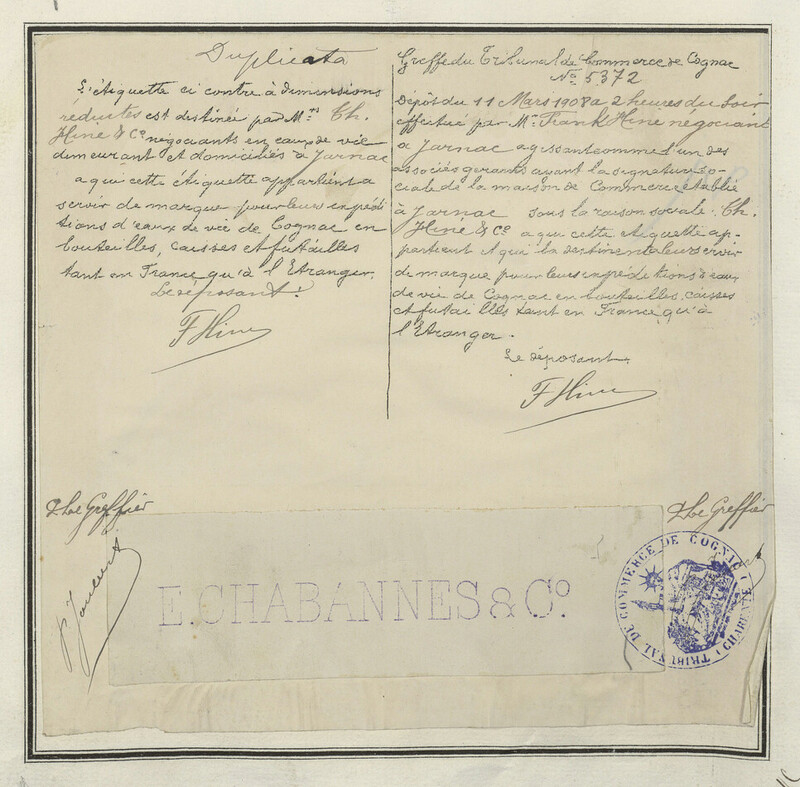 Duplicata
L'étiquette ci contre à dimensions
réduites est destinée par Mrs Th.
Hine & Co négociants en eaux de vie
demeurant et domiciliés à Jarnac
a qui cette étiquette appartient a
servir de marque pour leurs expédi
tions d'eaux de vie de Cognac en
bouteilles, caisses et futailles
tant en France qu'à l'Etranger.
Le déposant.
F Hine
Greffe du Tribunal de Commerce de Cognac
No 5372
Dépôt du 11 Mars 1908 a 2 heures du soir
effectué par Mr Frank Hine négociant
a Jarnac agissant comme l'un des
associés gerants ayant la signature so-
ciale de la maison de Commerce établie
à Jarnac sous la raison sociale. Th.
Hine & Co a qui cette étiquette ap-
partient et qui la destine a leur servir
de marque pour leurs expéditions d'eaux
de vie de Cognac en bouteilles, caisses
et futailles tant en France, qu'à
l'Etranger.
Le déposant.
F Hine
Le Greffier
Le Greffier
E. CHABANNES & Co.
TRIBUNAL DE COMMERCE DE COGNAC (CHARENTE)